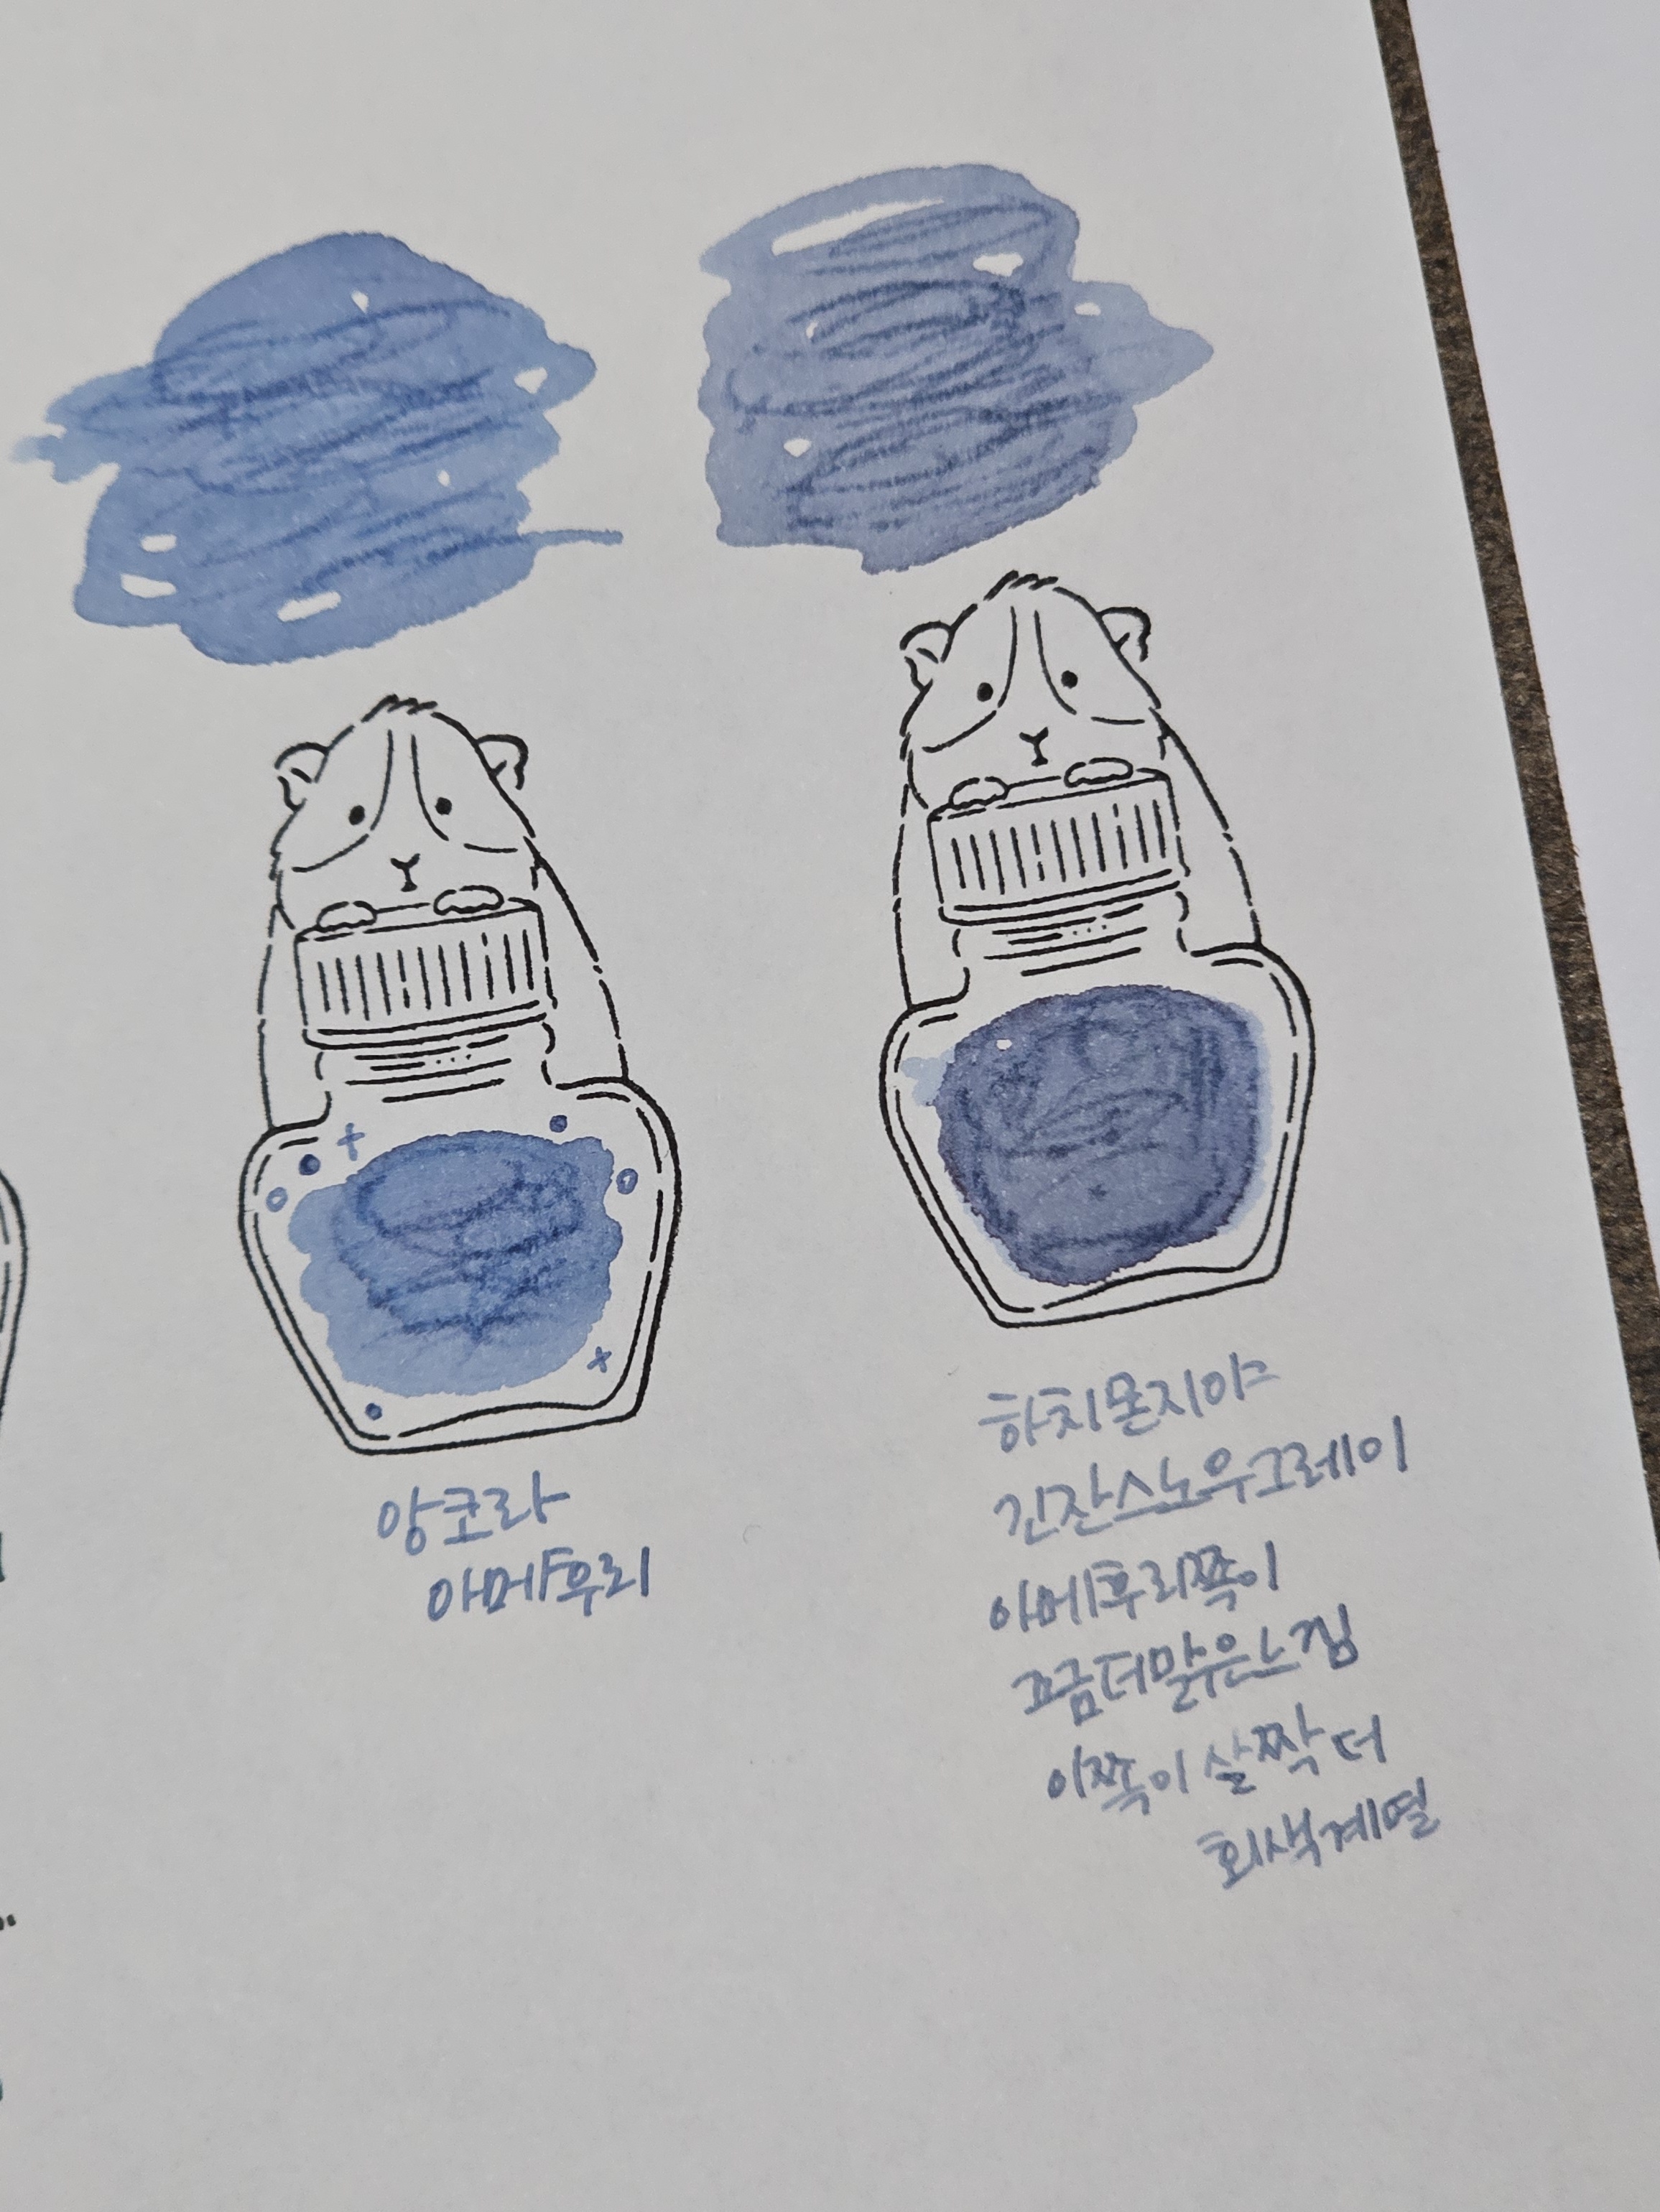 앙코라
아메후리
하치몬지야
긴잔스노우그레이
아메후리쪽이
쪼금더맑은느낌
이쪽이 살짝 더
회색계열